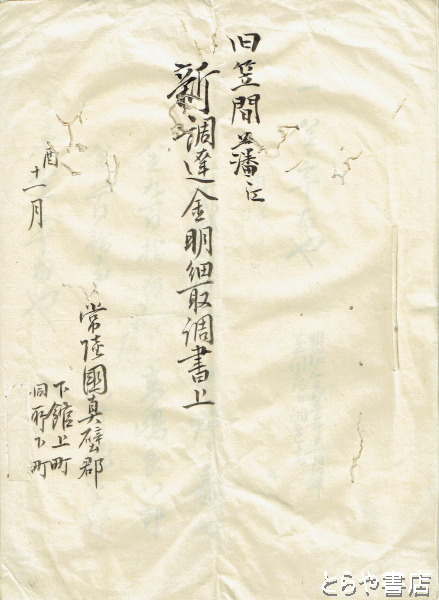 旧笠間藩江
新調達金明細取調書上
酉
十一月
常陸國真壁郡
下館上町
同所下町
とらや書店